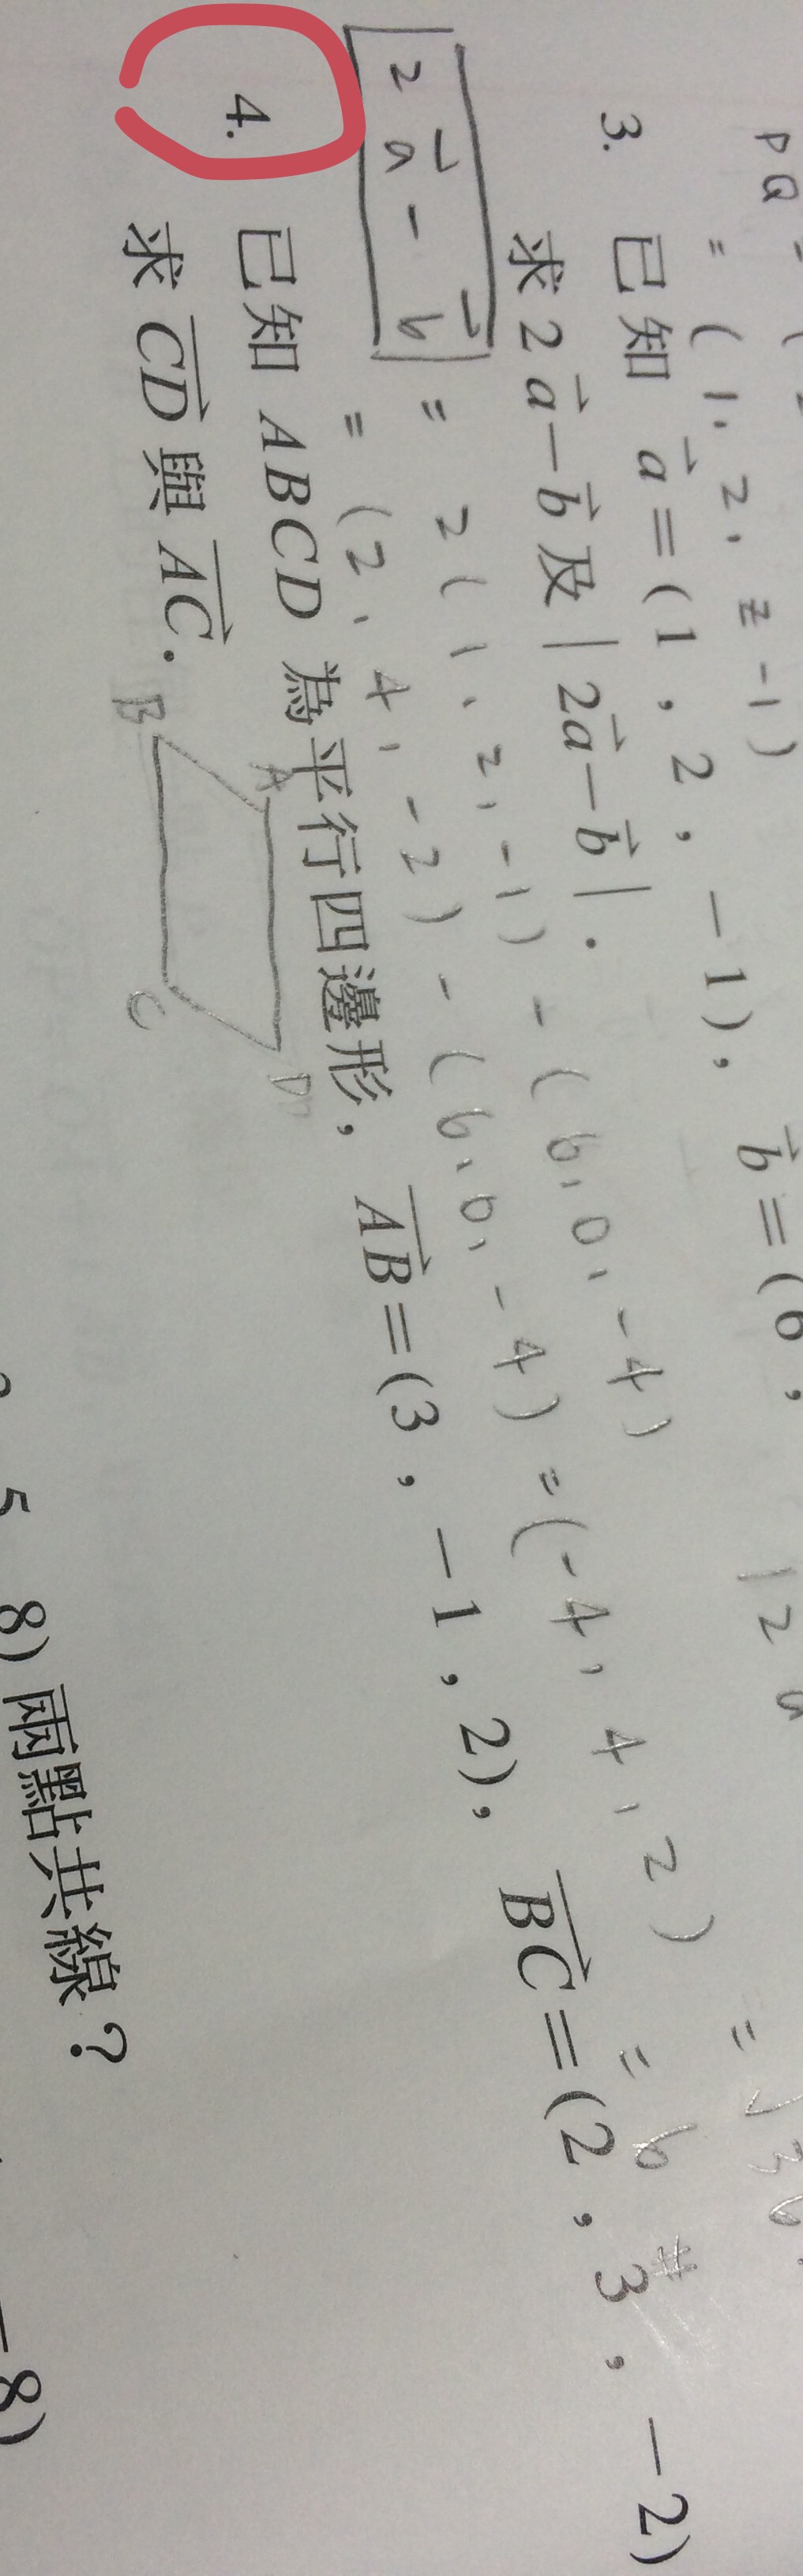 PQ
= (1, 2, z-1)
3. 已知 a⃗=(1，2，−1)，b⃗=(6，
求 2a⃗−b⃗ 及 |2a⃗−b⃗|．
|2
2a⃗ - b⃗ = 2(1, 2, -1) - (6, 0, -4)
= (2, 4, -2) - (6, 0, -4) = (-4, 4, 2)
= 6 #
4. 已知 ABCD 為平行四邊形，AB⃗=(3，−1，2)，BC⃗=(2，3，−2)
求 CD⃗ 與 AC⃗．
A
B
C
D
5
8) 兩點共線？
−8)